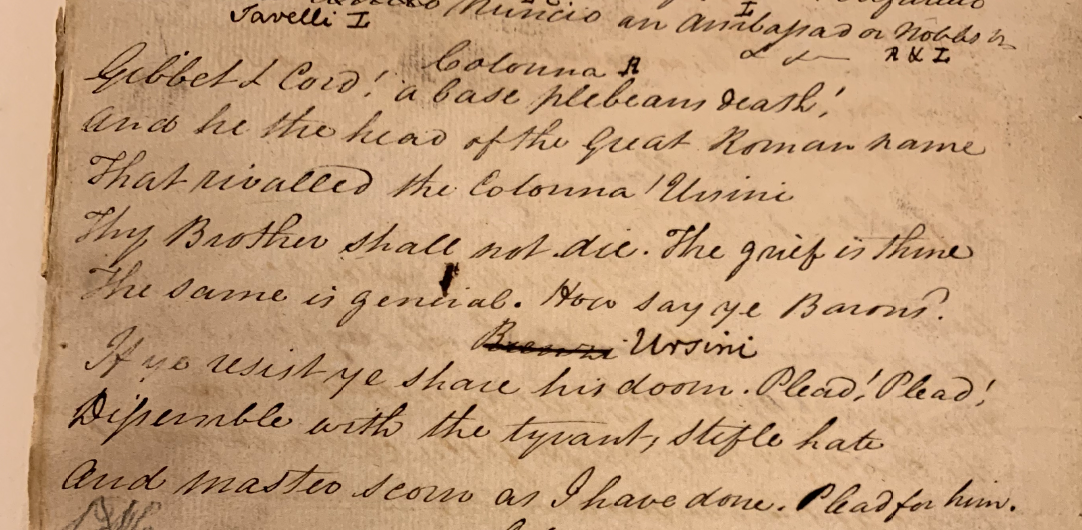 Savelli I Nuncio an Ambassador Nobles &c
& & R & I
Colonna R
Gibbet & Cord! a base plebeans death!
And he the head of the Great Roman name
That rivalled the Colonna! Ursini
Thy Brother shall not die. The grief is thine
The same is general. How say ye Barons?
Ursini
If ye resist ye share his doom. Plead! Plead!
Dissemble with the tyrant, stifle hate
And master scorn as I have done. Plead for him.